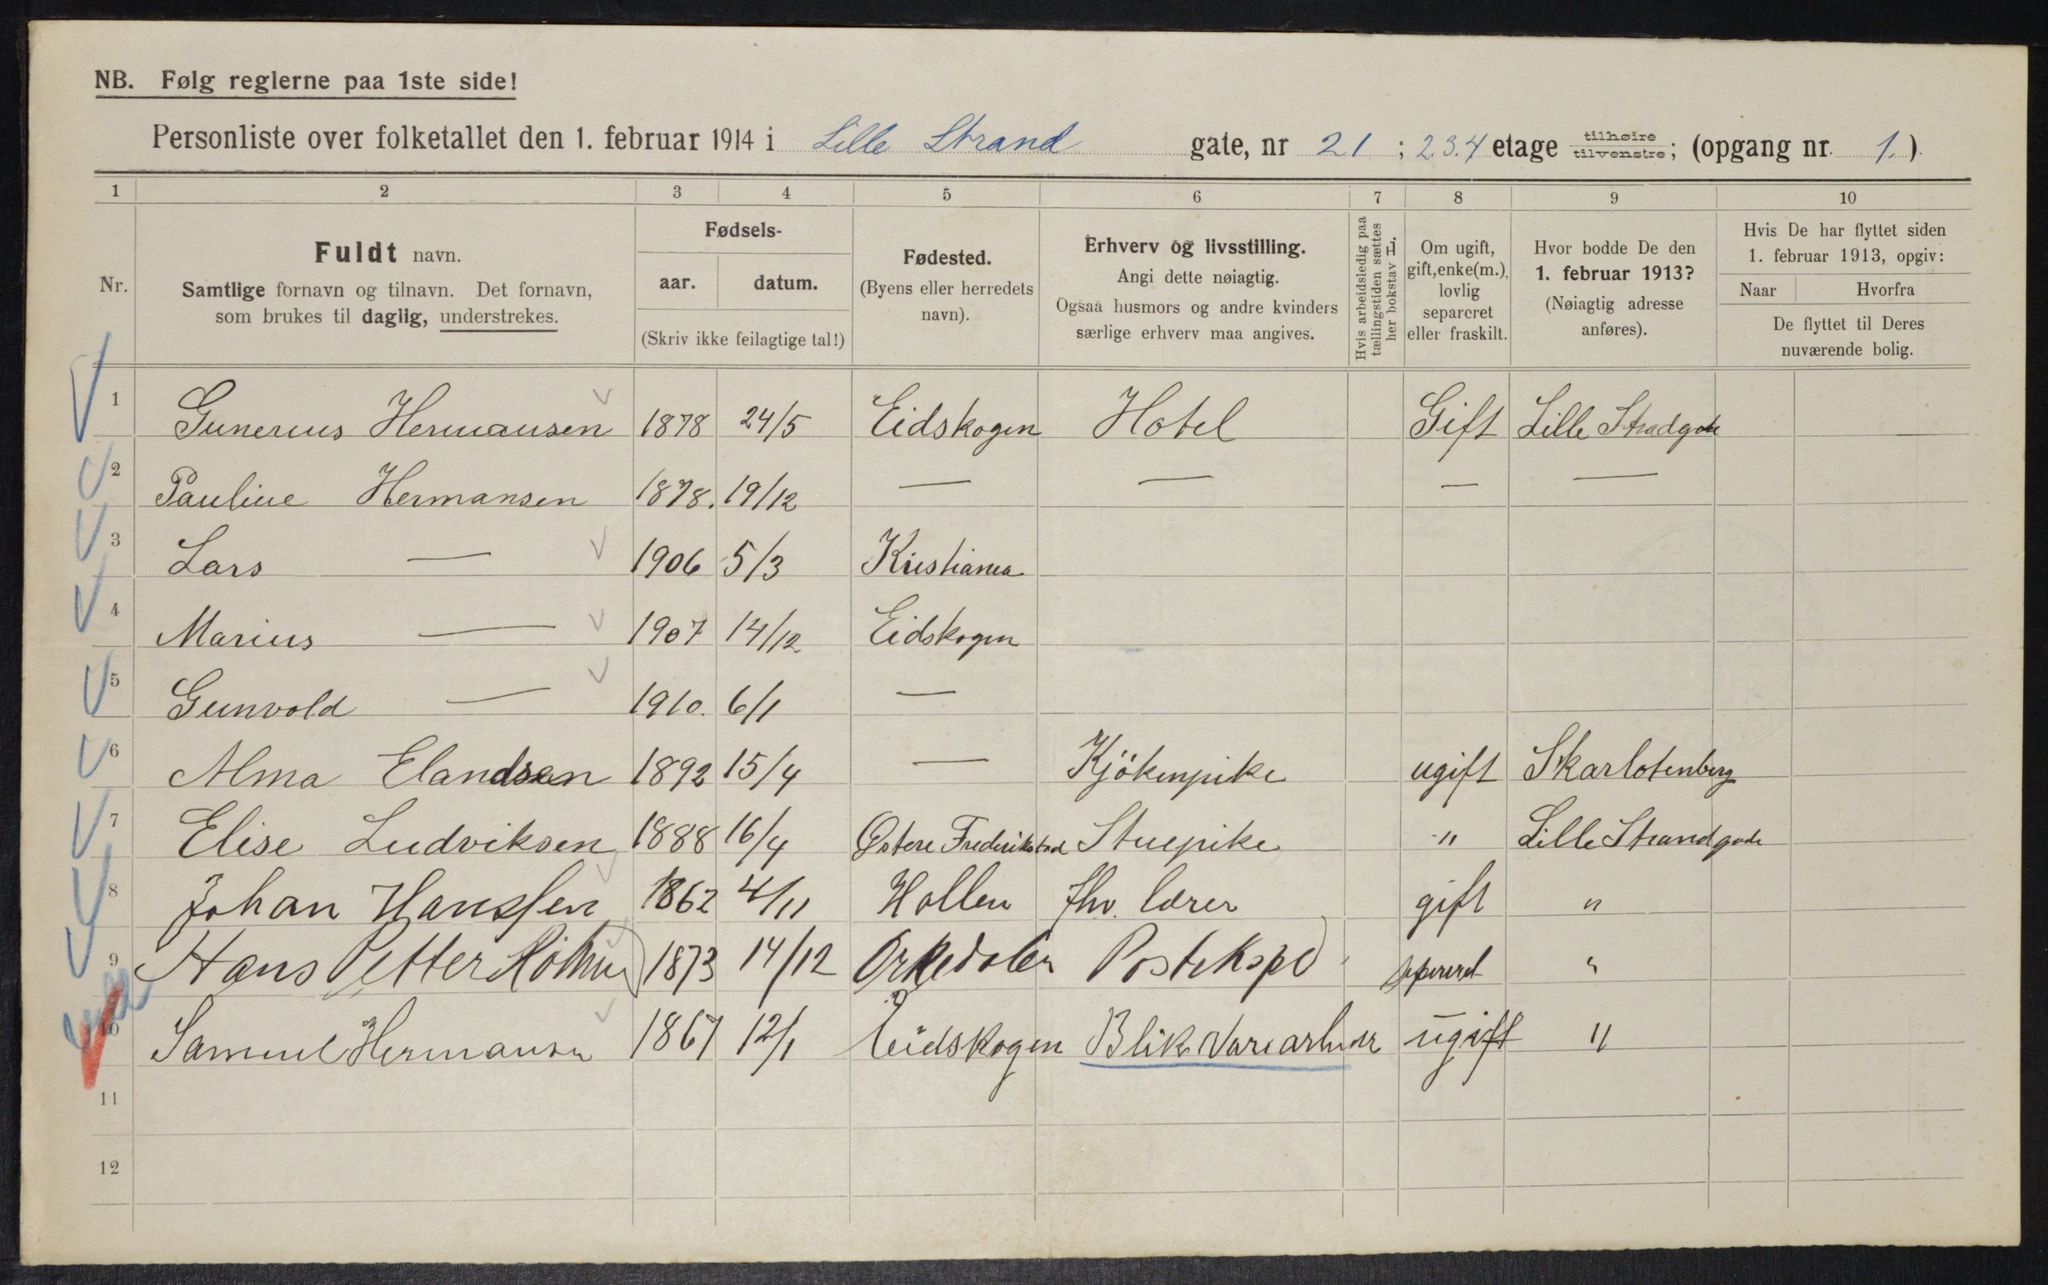 NB. Følg reglerne paa 1ste side!
Personliste over folketallet den 1. februar 1914 i Lille Strand gate, nr 21 ; 2.3.4 etage tilhøire / tilvenstre; (opgang nr. 1.)
1 2 3 4 5 6 7 8 9 10
Nr.
Fuldt navn.
Samtlige fornavn og tilnavn. Det fornavn,
som brukes til daglig, understrekes.
Fødsels-
aar. datum.
(Skriv ikke feilagtige tal!)
Fødested.
(Byens eller herredets
navn).
Erhverv og livsstilling.
Angi dette nøiagtig.
Ogsaa husmors og andre kvinders
særlige erhverv maa angives.
Hvis arbeidsledig paa
tællingstiden sættes
her bokstav L.
Om ugift,
gift, enke(m.),
lovlig
separeret
eller fraskilt.
Hvor bodde De den
1. februar 1913?
(Nøiagtig adresse
anføres).
Hvis De har flyttet siden
1. februar 1913, opgiv:
Naar Hvorfra
De flyttet til Deres
nuværende bolig.
1 Gunerius Hermansen 1878 24/5 Eidskogen Hotel Gift Lille Stradgate
2 Pauline Hermansen 1878. 19/12 — — — —
3 Lars — 1906 5/3 Kristiania
4 Marius — 1907 14/12 Eidskogen
5 Gunvold — 1910. 6/1 —
6 Alma Elandsen 1892 15/4 — Kjökenpike ugift Skarlotenberg
7 Elise Ludviksen 1888 16/4 Østere Frederikstad Stuepike " Lille Strandgade
8 Johan Hanssen 1862 4/11 Hollen fhv. lærer gift "
9 Hans Petter 1873 14/12 Orkedalen Postekspd separeret "
10 Samuel Hermansen 1867 12/1 Eidskogen Blik Varearbeider ugift "
11
12